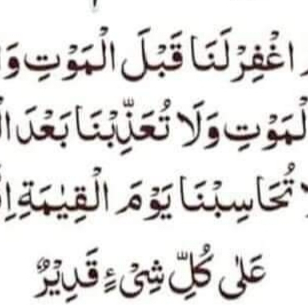 اغْفِرْلَنَا قَبْلَ الْمَوْتِ
الْمَوْتِ وَلَا تُعَذِّبْنَا بَعْدَ
تُحَاسِبْنَا يَوْمَ الْقِيٰمَةِ
عَلٰى كُلِّ شِىْءٍ قَدِيْرٌ